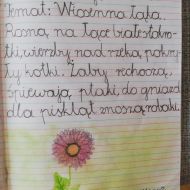 Temat: Wiosenna łąka.
Rosną na łące białe stokro-
tki, wierzby nad rzeką pokry-
ły kotki. Żaby rechoczą,
śpiewają ptaki, do gniazd
dla piskląt znoszą robaki.